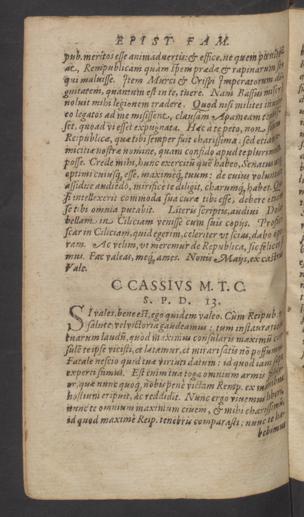 EPIST. FAM.
pub. meritos esse animaduertis: & effice, ne quem pœniteat
ac, Rempublicam quàm spem prædæ & rapinarum se-
qui maluisse. Item Murci & Crispi Imperatorum di-
gnitatem, quantum est in te, tuere. Nam Bassus misere
noluit mihi legionem tradere. Quod nisi milites inuito
eo legatos ad me misissent, clausam Apameam
set, quoad vi esset expugnata. Hæc à te peto, non
Reipublicæ, quæ tibi semper fuit charissima: sed etiam
micitiæ nostræ nomine, quam confido apud te plurimum
posse. Crede mihi, hunc exercitũ quẽ habeo, Senatus
optimi cuiusq. esse, maximeq́; tuum: de cuius voluntate
assiduè audiẽdo, mirificè te diligit, charumq́; habet. Quod
si intellexerit commoda sua curæ tibi esse, debere etiam
se tibi omnia putabit. Literis scriptis, audiui Dola-
bellam. in Ciliciam venisse cum suis copijs. Profici-
scar in Ciliciam, quid egerim, celeriter vt scias, dabo ope-
ram. Ac velim, vt meremur de Republica, sic felices si-
mus. Fac valeas, meq́; ames. Nonis Maijs, ex castris
Vale.
C. CASSIVS M. T. C.
S. P. D. 13.
SI vales, bene est, ego quidem valeo. Cùm Reipub.
salute, vel victoria gaudeamus: tum instauratione
tuarum laudũ, quòd maximus consularis maximũ con-
sulẽ te ipse vicisti, et lætamur, et mirari satis nõ possumus.
Fatale nescio quid tuæ virtuti datum: id quod iam sæpe
experti sumus. Est enim tua toga omnium armis felici-
or, quæ nunc quoq́; nobis penè victam Remp. ex manibus
hostium eripuit, ac reddidit. Nunc ergo viuemus liberi,
nunc te omnium maximum ciuem, & mihi charissimum
id quod maximè Reip. tenebris comparasti: nunc te ha-
bebimus